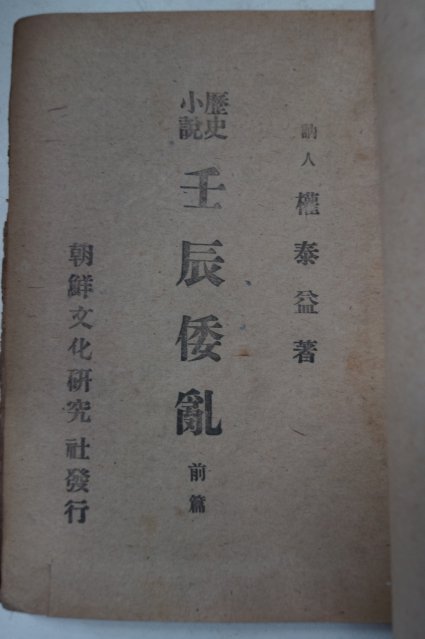 訥人 權泰益著
歷史小說 壬辰倭亂 前篇
朝鮮文化硏究社發行